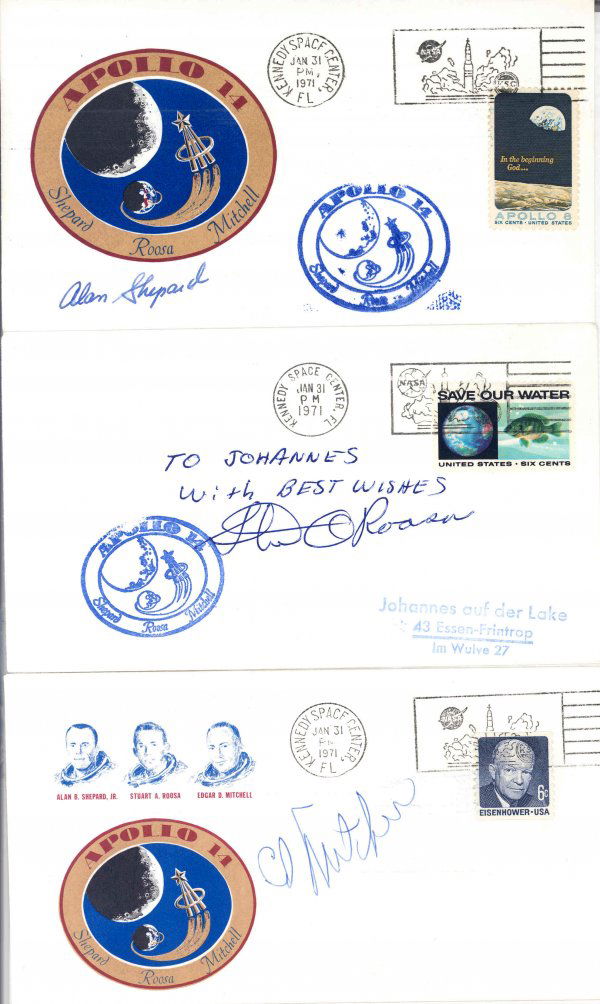 APOLLO 14
Shepard
Roosa
Mitchell
Alan Shepard
KENNEDY SPACE CENTER,
JAN 31
PM
1971
FL
NASA
KSC
In the beginning
God...
APOLLO 8
SIX CENTS · UNITED STATES
APOLLO 14
Shepard
Roosa
Mitchell
KENNEDY SPACE CENTER, FL
JAN 31
PM
1971
NASA
SAVE OUR WATER
UNITED STATES · SIX CENTS
TO JOHANNES
With BEST WISHES
Stu Roosa
APOLLO 14
Shepard
Roosa
Mitchell
Johannes auf der Lake
43 Essen-Frintrop
Im Wulve 27
ALAN B. SHEPARD, JR.
STUART A. ROOSA
EDGAR D. MITCHELL
APOLLO 14
Shepard
Roosa
Mitchell
KENNEDY SPACE CENTER,
JAN 31
PM
1971
FL
NASA
6c
EISENHOWER · USA
Ed Mitchell